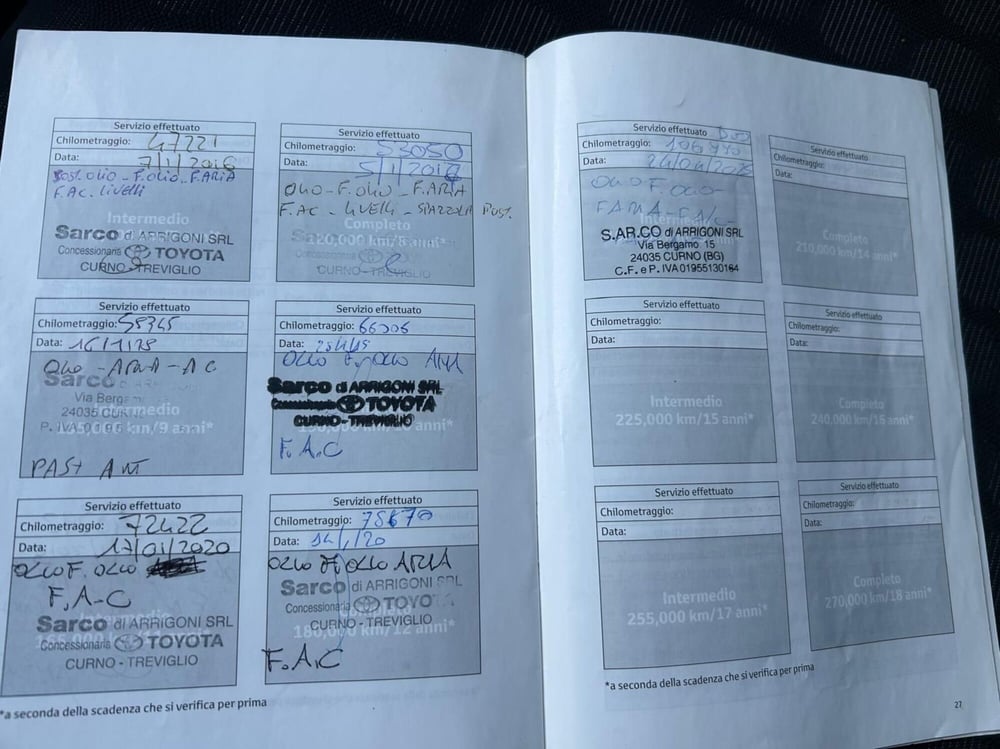 Servizio effettuato
Chilometraggio: 47221
Data: 7/1/2016
F.OLIO - F.ARIA
F.AC. LIVELLI
Intermedio
Sarco di ARRIGONI SRL
Concessionaria TOYOTA
CURNO - TREVIGLIO
Servizio effettuato
Chilometraggio: 53050
Data: 5/1/2016
OLIO - F.OLIO - F.ARIA
F.AC - LIVELLI - SPAZZOLA POST.
Completo
120,000 km/8 anni*
Servizio effettuato
Chilometraggio: 58345
Data: 16/1/18
OLIO - ARIA - AC
Sarco
Via Berg
24035 CUR
Intermedio
km/9 anni*
P. IVA
PAST ANT
Servizio effettuato
Chilometraggio: 66006
Data:
OLIO F. OLIO ARIA
Sarco di ARRIGONI SRL
Concessionaria TOYOTA
CURNO - TREVIGLIO
anni*
F.A.C
Servizio effettuato
Chilometraggio: 72422
Data: 17/01/2020
OLIO F. OLIO
F.A-C
Sarco di ARRIGONI SRL
Concessionaria TOYOTA
CURNO - TREVIGLIO
Servizio effettuato
Chilometraggio: 78670
Data:
OLIO F. OLIO ARIA
Sarco di ARRIGONI SRL
Concessionaria TOYOTA
CURNO - TREVIGLIO
180,000 km/12 anni*
F.A.C
*a seconda della scadenza che si verifica per prima
Servizio effettuato
Chilometraggio:
Data:
OLIO F. OLIO-
S.AR.CO di ARRIGONI SRL
Via Bergamo 15
24035 CURNO (BG)
C.F. e P. IVA 01955130164
Servizio effettuato
Chilometraggio:
Data:
Completo
210,000 km/14 anni*
Servizio effettuato
Chilometraggio:
Data:
Intermedio
225,000 km/15 anni*
Servizio effettuato
Chilometraggio:
Data:
Completo
240,000 km/16 anni*
Servizio effettuato
Chilometraggio:
Data:
Intermedio
255,000 km/17 anni*
Servizio effettuato
Chilometraggio:
Data:
Completo
270,000 km/18 anni*
*a seconda della scadenza che si verifica per prima
27